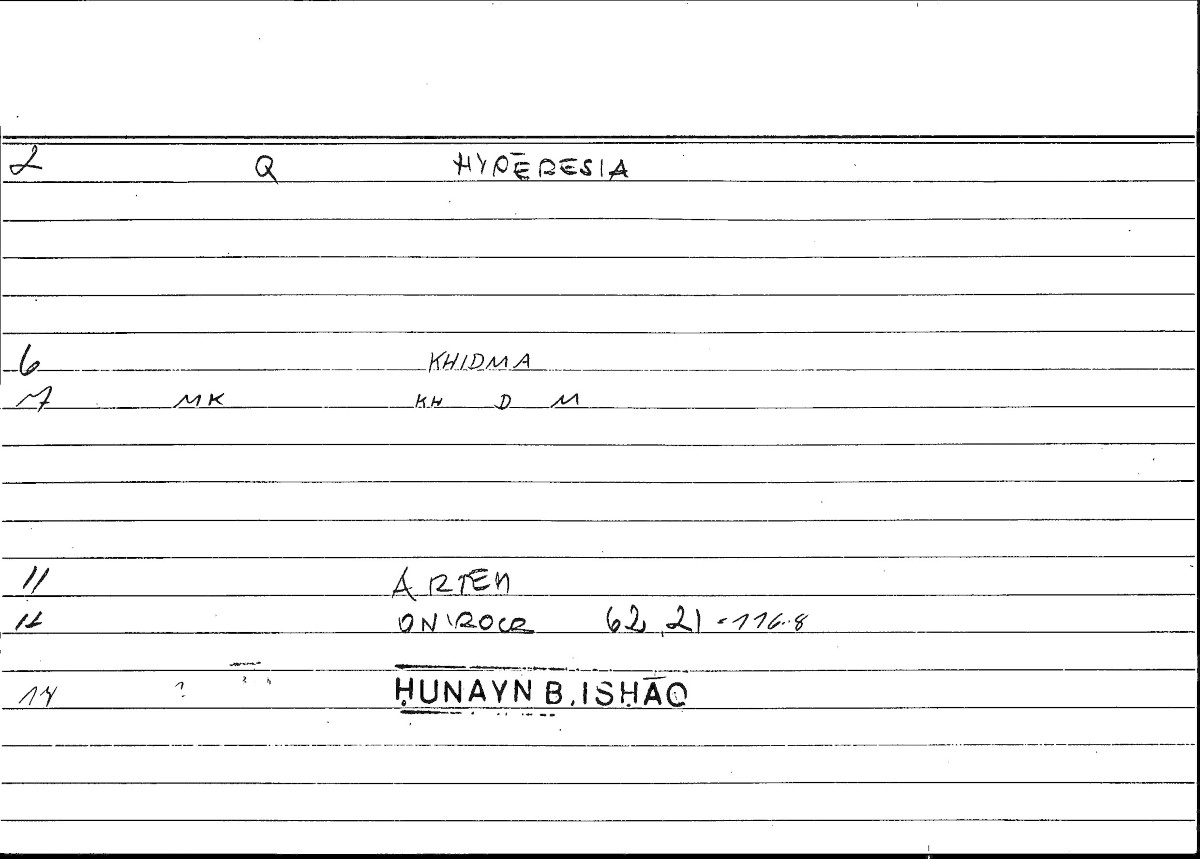 2 Q HYPĒRESIA
6 KHIDMA
7 MK KH D M
11 ARTEM
12 ONIROCR 62,21 = 116.8
14 ? ḤUNAYN B. ISḤĀQ